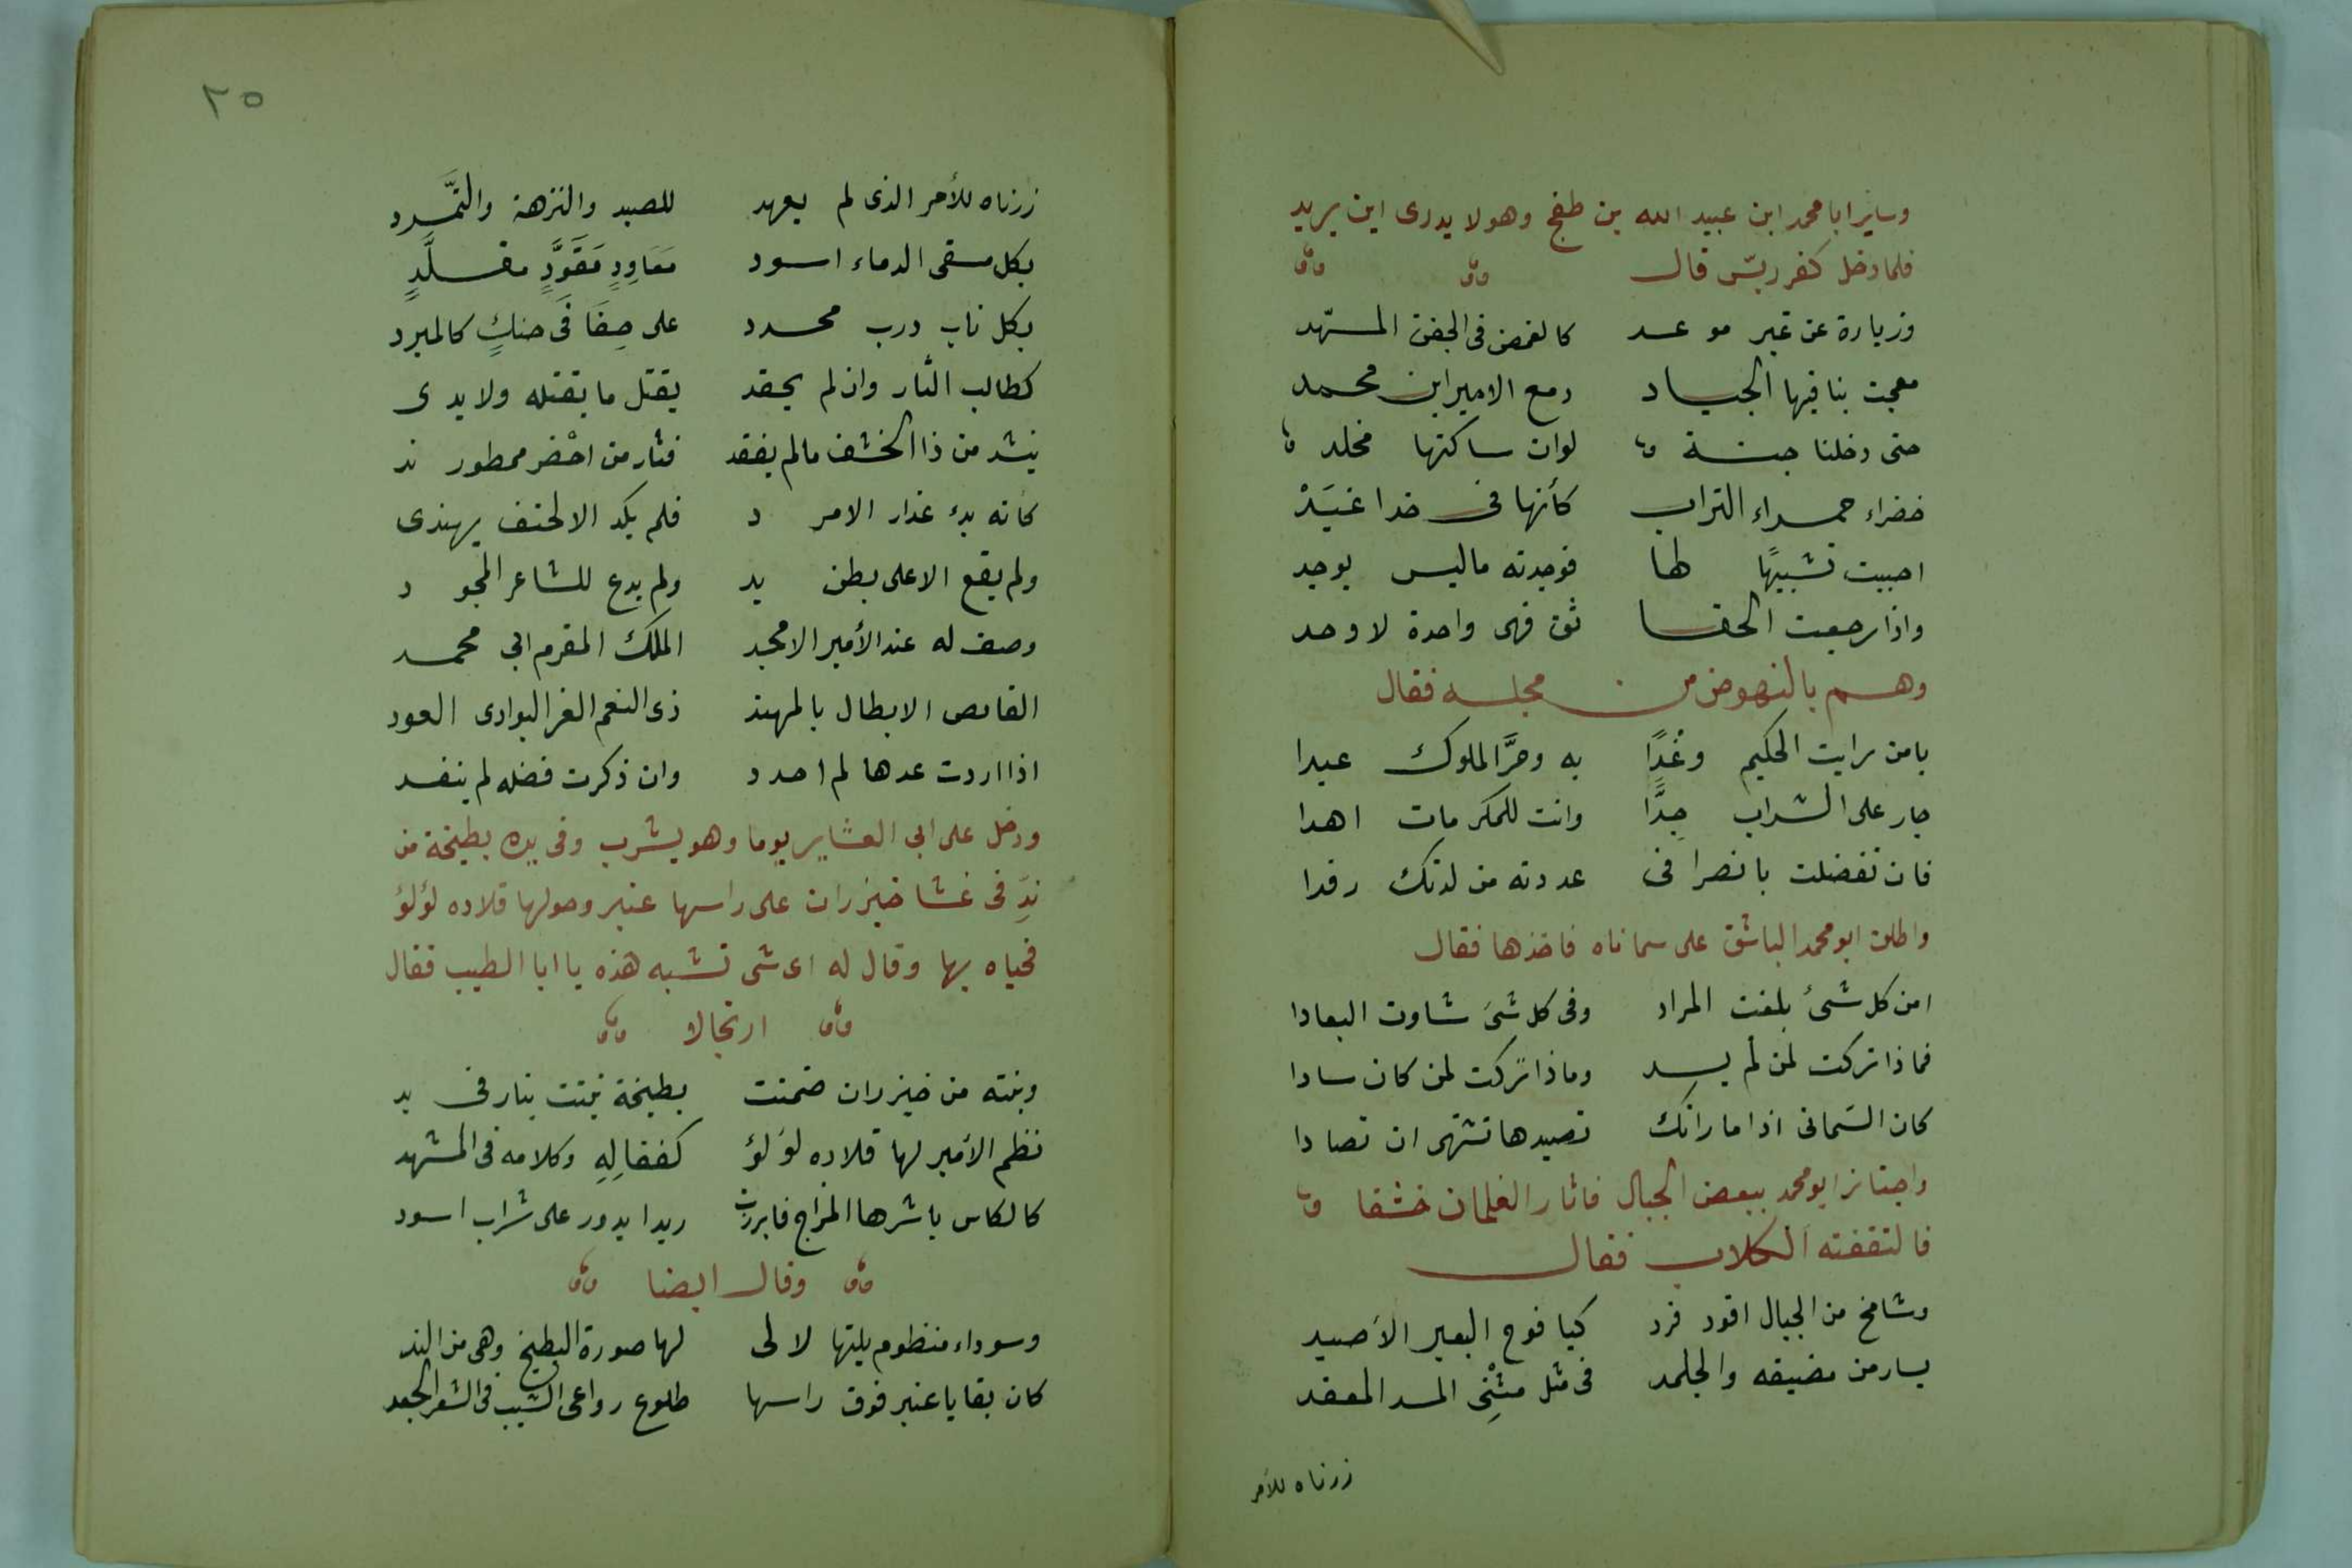 وساير ابا محمد ابن عبيد الله بن طغج وهو لا يدرى اين يريد
فلما دخل كفر ربس قال
وزيارة عن غير موعد كالغمض فى الجفن المسهد
معجت بنا فيها الجياد ومع الامير ابن محمد
حتى دخلنا جنة لو ان ساكنها مخلد
خضراء حمراء التراب كأنها فى خد اغيد
احببت تشبيهًا لها فوجدته ما ليس يوجد
واذا رجعت الحقا ئق فهى واحدة لاوحد
وهم بالنهوض من مجلسه فقال
يا من رايت الحكيم وغدًا به وحرَّ الملوك عبدا
جار على الشراب جدًّا وانت للمكرمات اهدا
فان تفضلت بانصرافى عددته من لدنك رفدا
واطلق ابو محمد الباشق على سماناه فاخذها فقال
امن كل شىء بلغت المراد وفى كل شىء شاوت البعادا
فماذا تركت لمن لم يسد وماذا تركت لمن كان سادا
كان السمانى اذا ما راتك تصيدها تشتهى ان تصادا
واجتاز ابو محمد ببعض الجبال فاثار الغلمان خشفا
فالتقفته الكلاب فقال
وشامخ من الجبال اقود فرد كيافوخ البعير الأصيد
يسار من مضيقه والجلمد فى مثل متْنِ المسد المعقد
زرناه للأمر
٢٥
زرناه للأمر الذى لم يعهد للصيد والنزهة والتمَّرد
بكل مسقى الدماء اسود مَعَاوِدٍ مَقَوَّدٍ مقلَّدٍ
بكل ناب درب محدد على حِفَافَى حنكٍ كالمبرد
كطالب الثأر وان لم يحقد يقتل ما يقتله ولا يدى
ينشد من ذا الخشف ما لم يفقد فثار من اخْضر ممطور ند
كانه بدء عذار الامرد فلم يكد الا لحتف يهتدى
ولم يقع الا على بطن يد ولم يدع للشاعر المجود
وصف له عند الأمير الامجد الملك المقرم ابى محمد
القانص الابطال بالمهند ذى النعم الغر البوادى العود
اذا اردت عدها لم احدد وان ذكرت فضله لم ينفد
ودخل على ابى العشاير يوما وهو يشرب وفى يده بطيخة من
ندِّ فى غشا خيزران على راسها عنبر وحولها قلاده لؤلؤ
فحياه بها وقال له اى شى تشبه هذه يا ابا الطيب فقال
ارتجالا
وبنته من خيزران ضمنت بطيخة نبتت بنار فى يد
نظم الأمير لها قلاده لؤلؤ كفعالِهِ وكلامه فى المشهد
كالكاس باشرها المزاج فابرزت زبدا يدور على شراب اسود
وقال ايضا
وسوداء منظوم يلتها لالى لها صورة البطيخ وهى من الند
كان بقايا عنبر فوق راسها طلوع رواعى الشيب فى الشعر الجعد